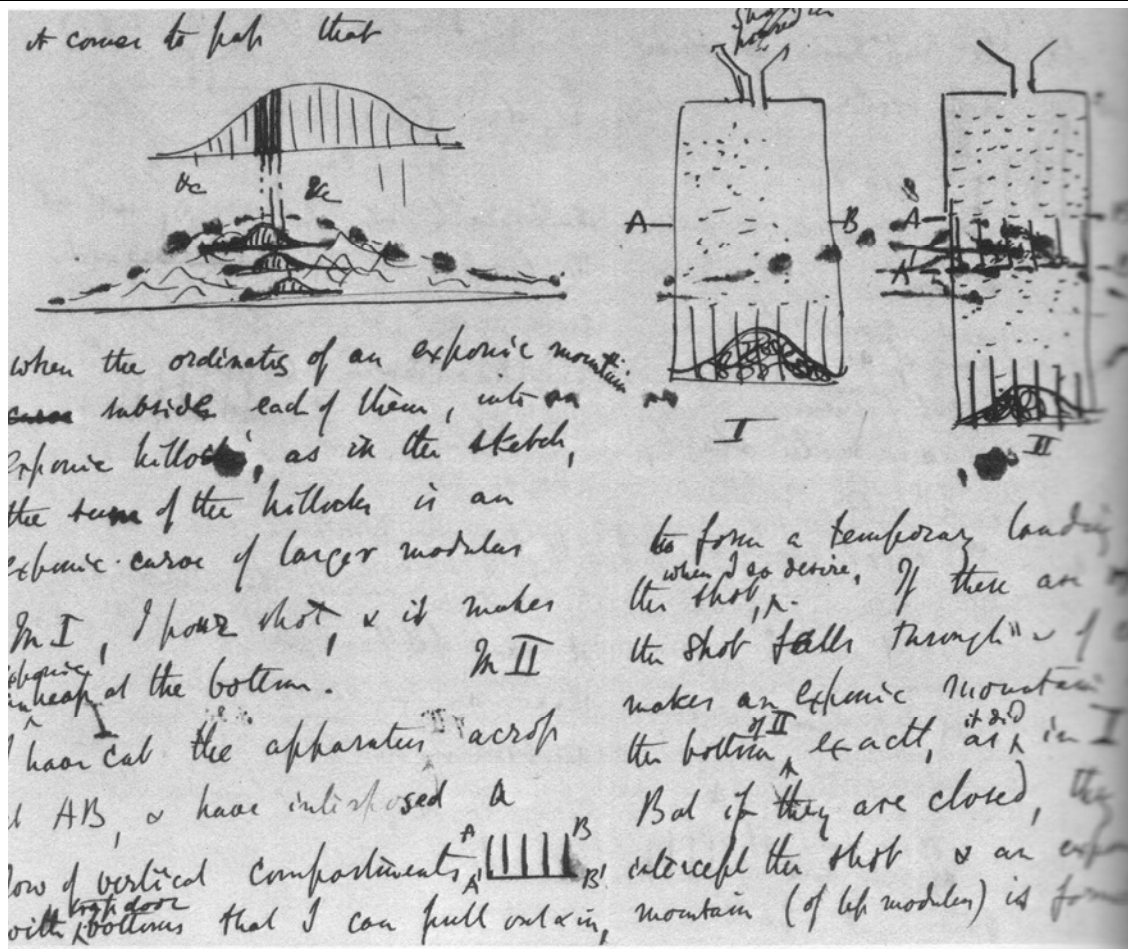 it comes to pass that
when the ordinates of an exponic mountain
subside each of them, into an
exponic hillock, as in the sketch,
the sum of the hillocks is an
exponic curve of larger modulus
In I, I pour shot, & it makes
exponic
an heap at the bottom. In II
I have cut the apparatus across
at AB, & have interposed a
row of vertical compartments
A B
A' B'
trap door
with bottoms that I can pull out & in,
shot is
poured
A B
I
A
A'
II
to form a temporary landing
when I so desire.
the shot, If these are
the shot falls through
makes an exponic mountain
of II it did
the bottom, exactly, as in I
But if they are closed, they
intercept the shot & an
mountain (of less modulus) is